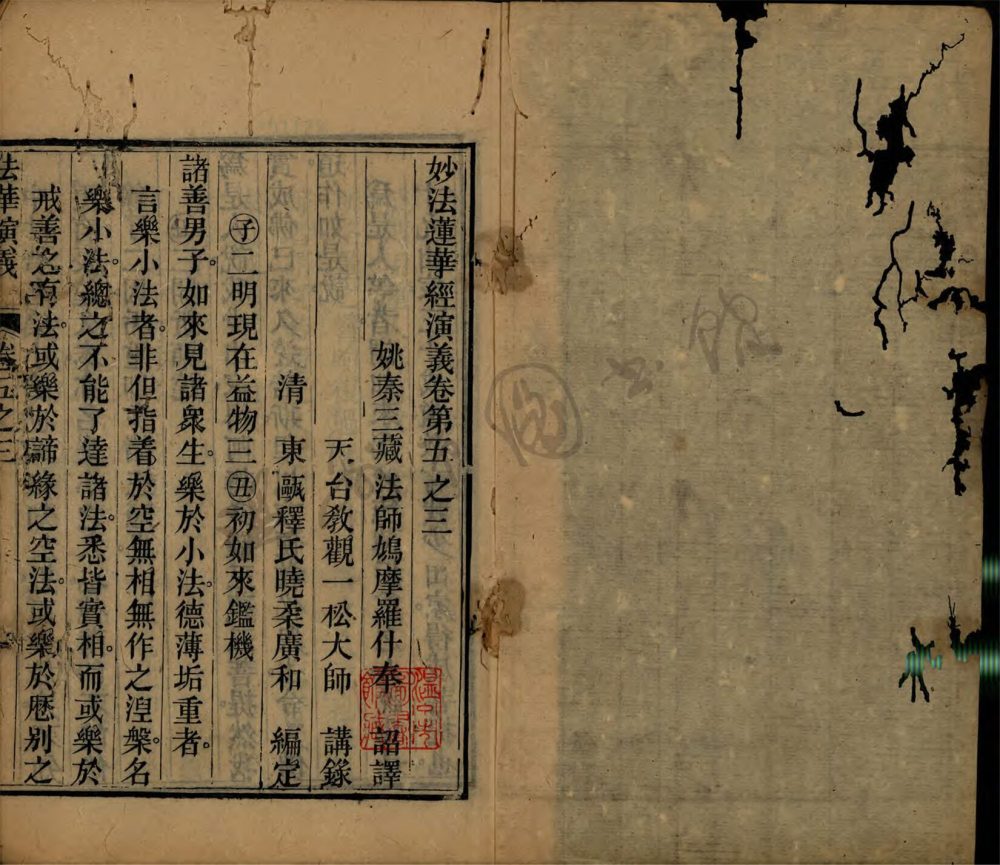 妙法蓮華經演義卷第五之三
姚秦三藏法師鳩摩羅什奉　詔譯
天台教觀一松大師　講錄
清　東甌釋氏曉柔廣和　編定
㊉子二明現在益物三㊉丑初如來鑑機
諸善男子。如來見諸衆生。樂於小法。德薄垢重者。
言樂小法者。非但指着於空無相無作之湼槃。名
樂小法。總之不能了達諸法。悉皆實相。而或樂於
戒善之有法。或樂於諦緣之空法。或樂於歷別之
法華演義　卷五之三